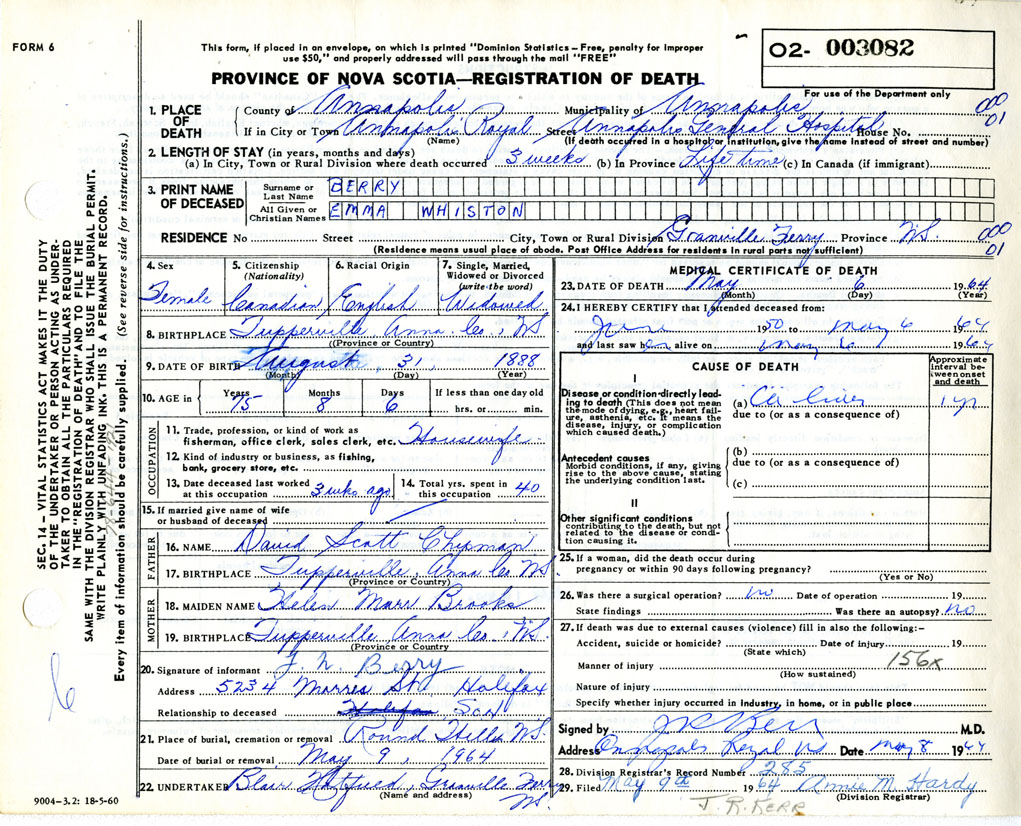 FORM 6
This form, if placed in an envelope, on which is printed "Dominion Statistics – Free, penalty for improper
use $50," and properly addressed will pass through the mail "FREE"
PROVINCE OF NOVA SCOTIA—REGISTRATION OF DEATH
O2- 003082
For use of the Department only
1. PLACE OF DEATH
County of Annapolis Municipality of Annapolis 000
If in City or Town Annapolis Royal Street Annapolis General Hospital House No. 01
(Name) (If death occurred in a hospital or institution, give the name instead of street and number)
2. LENGTH OF STAY (in years, months and days)
(a) In City, Town or Rural Division where death occurred 3 weeks (b) In Province Life time (c) In Canada (if immigrant)
3. PRINT NAME OF DECEASED
Surname or Last Name BERRY
All Given or Christian Names EMMA WHISTON
RESIDENCE No Street City, Town or Rural Division Granville Ferry Province N.S. 000
(Residence means usual place of abode. Post Office Address for residents in rural parts not sufficient) 01
4. Sex Female
5. Citizenship (Nationality) Canadian
6. Racial Origin English
7. Single, Married, Widowed or Divorced (write the word) Widowed
8. BIRTHPLACE Tupperville Anna. Co., N.S.
(Province or Country)
9. DATE OF BIRTH August 31 1888
(Month) (Day) (Year)
10. AGE in Years 75 Months 8 Days 6 If less than one day old hrs. or min.
OCCUPATION
11. Trade, profession, or kind of work as
fisherman, office clerk, sales clerk, etc. Housewife
12. Kind of industry or business, as fishing,
bank, grocery store, etc.
13. Date deceased last worked at this occupation 3 wks ago
14. Total yrs. spent in this occupation 40
15. If married give name of wife
or husband of deceased
FATHER
16. NAME David Scott Chipman
17. BIRTHPLACE Tupperville, Anna Co N.S.
(Province or Country)
MOTHER
18. MAIDEN NAME Helen Marr Brooks
19. BIRTHPLACE Tupperville, Anna. Co., N.S.
(Province or Country)
20. Signature of informant F. N. Berry
Address 5234 Morris St. Halifax
Relationship to deceased Halifax, Son
21. Place of burial, cremation or removal Round Hill N.S.
Date of burial or removal May 9, 1964
22. UNDERTAKER Blair Hatfield, Granville Ferry
(Name and address) N.S.
9004–3.2: 18-5-60
MEDICAL CERTIFICATE OF DEATH
23. DATE OF DEATH May 6 1964
(Month) (Day) (Year)
24. I HEREBY CERTIFY that I attended deceased from:
June 1950 to May 6 1964
and last saw her alive on May 6 1964
CAUSE OF DEATH
Approximate interval between onset and death
I
Disease or condition directly leading to death (This does not mean the mode of dying, e.g., heart failure, asthenia, etc. It means the disease, injury, or complication which caused death.)
(a) Ca liver 1 yr
due to (or as a consequence of)
Antecedent causes
Morbid conditions, if any, giving rise to the above cause, stating the underlying condition last.
(b)
due to (or as a consequence of)
(c)
II
Other significant conditions
contributing to the death, but not related to the disease or condition causing it.
25. If a woman, did the death occur during
pregnancy or within 90 days following pregnancy?
(Yes or No)
26. Was there a surgical operation? no Date of operation 19
State findings Was there an autopsy? no
27. If death was due to external causes (violence) fill in also the following:-
Accident, suicide or homicide? Date of injury 19
(State which)
Manner of injury 156x
(How sustained)
Nature of injury
Specify whether injury occurred in industry, in home, or in public place
Signed by J R Kerr M.D.
Address Annapolis Royal NS Date May 8 1964
28. Division Registrar's Record Number 285
29. Filed May 9th 1964 Annie M. Hardy
(Division Registrar)
J. R. KERR
SEC. 14 – VITAL STATISTICS ACT MAKES IT THE DUTY
OF THE UNDERTAKER OR PERSON ACTING AS UNDER-
TAKER TO OBTAIN ALL THE PARTICULARS REQUIRED
IN THE "REGISTRATION OF DEATH" AND TO FILE THE
SAME WITH THE DIVISION REGISTRAR WHO SHALL ISSUE THE BURIAL PERMIT.
WRITE PLAINLY WITH UNFADING INK. THIS IS A PERMANENT RECORD.
Every item of information should be carefully supplied. (See reverse side for instructions.)
6